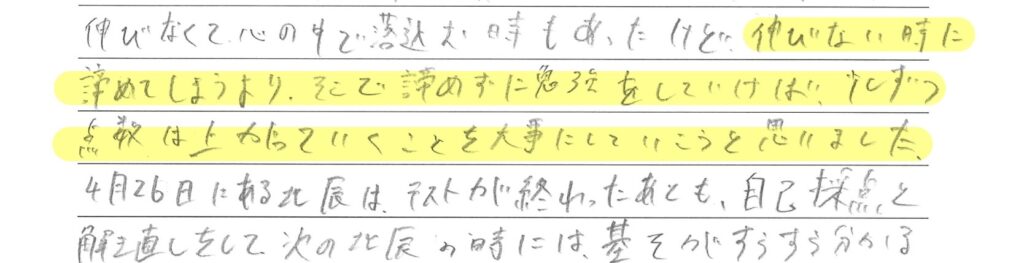 伸びなくて、心の中で落込む時もあったけど、伸びない時に
諦めてしまうより、そこで諦めずに勉強をしていけば、少しずつ
点数は上がっていくことを大事にしていこうと思いました。
4月26日にある北辰は、テストが終わったあとも、自己採点と
解き直しをして、次の北辰の時には、基そがすらすら分かる